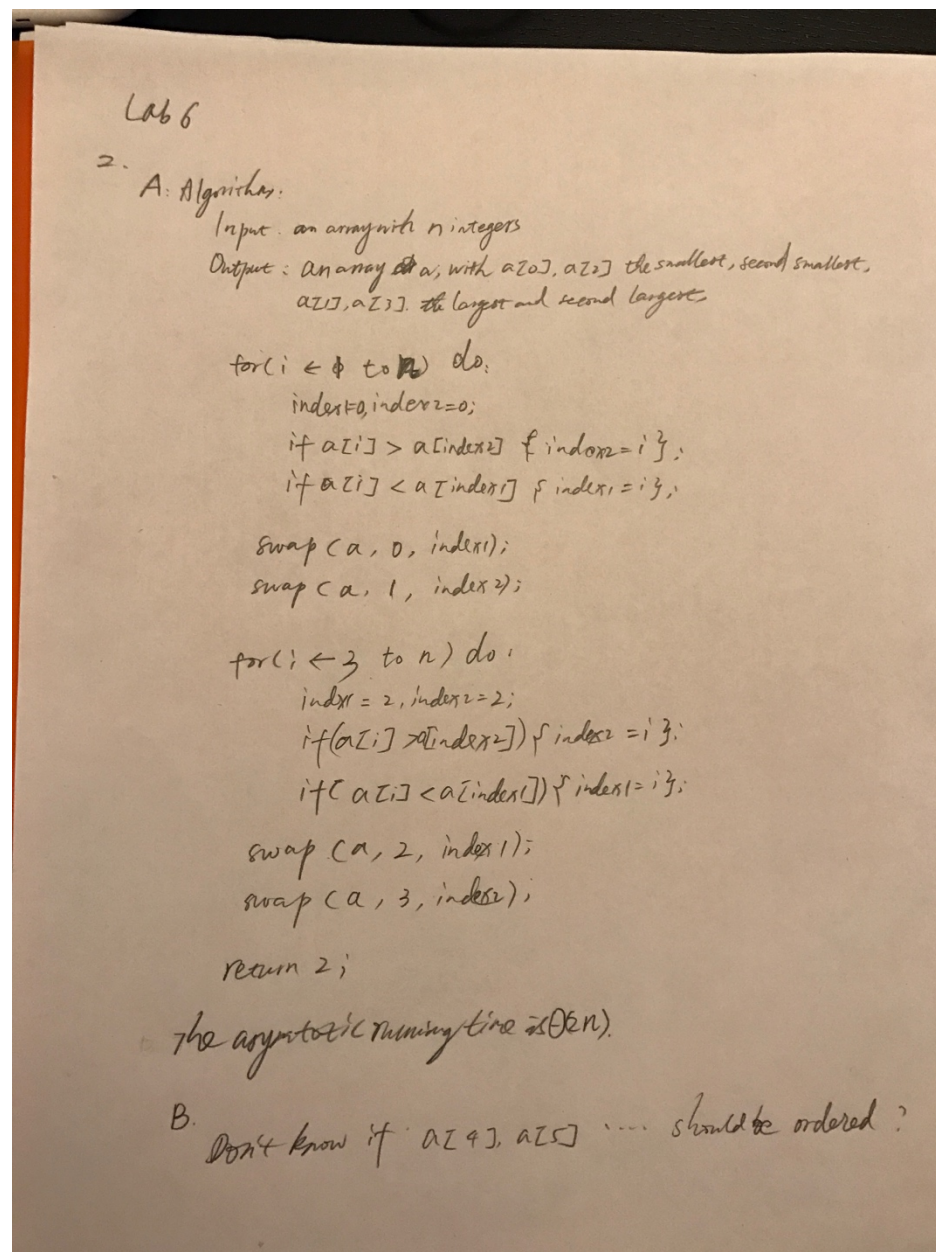 Lab 6
2.
A: Algorithm:
Input: an array with n integers
Output: an array a, with a[0], a[2] the smallest, second smallest,
a[1], a[3]. the largest and second largest.
for(i ← to ) do:
index1=0, index2=0;
if a[i] > a[index2] { index2 = i };
if a[i] < a[index1] { index1 = i };
swap (a, 0, index1);
swap (a, 1, index2);
for(i ← 3 to n) do:
indx1 = 2, index2 = 2;
if(a[i] >a[index2]) { index2 = i };
if( a[i] < a[index1]) { index1 = i };
swap (a, 2, index1);
swap (a, 3, index2);
return 2;
The asymtotic running time is (2n).
B.
Don't know if a[4], a[5] .... should be ordered?